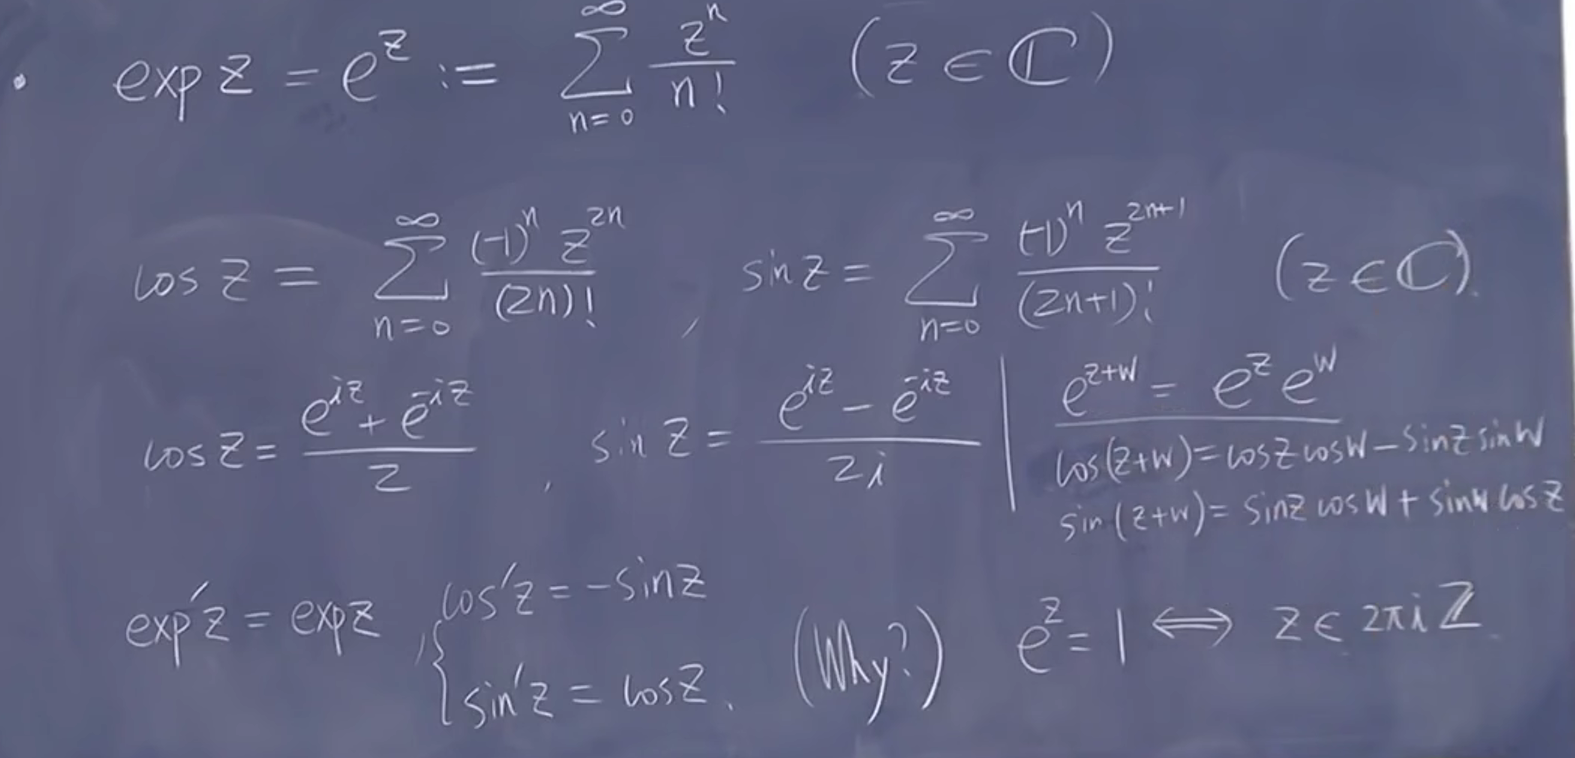 • exp z = e^z := ∑_{n=0}^{∞} z^n / n! (z ∈ ℂ)
cos z = ∑_{n=0}^{∞} (-1)^n z^{2n} / (2n)! , sin z = ∑_{n=0}^{∞} (-1)^n z^{2n+1} / (2n+1)! (z ∈ ℂ).
cos z = (e^{iz} + e^{-iz}) / 2 , sin z = (e^{iz} - e^{-iz}) / 2i
e^{z+w} = e^z e^w
cos(z+w) = cos z cos w - sin z sin w
sin(z+w) = sin z cos w + sin w cos z
exp' z = exp z , { cos' z = - sin z
sin' z = cos z . (Why?) e^z = 1 ⟺ z ∈ 2πi ℤ